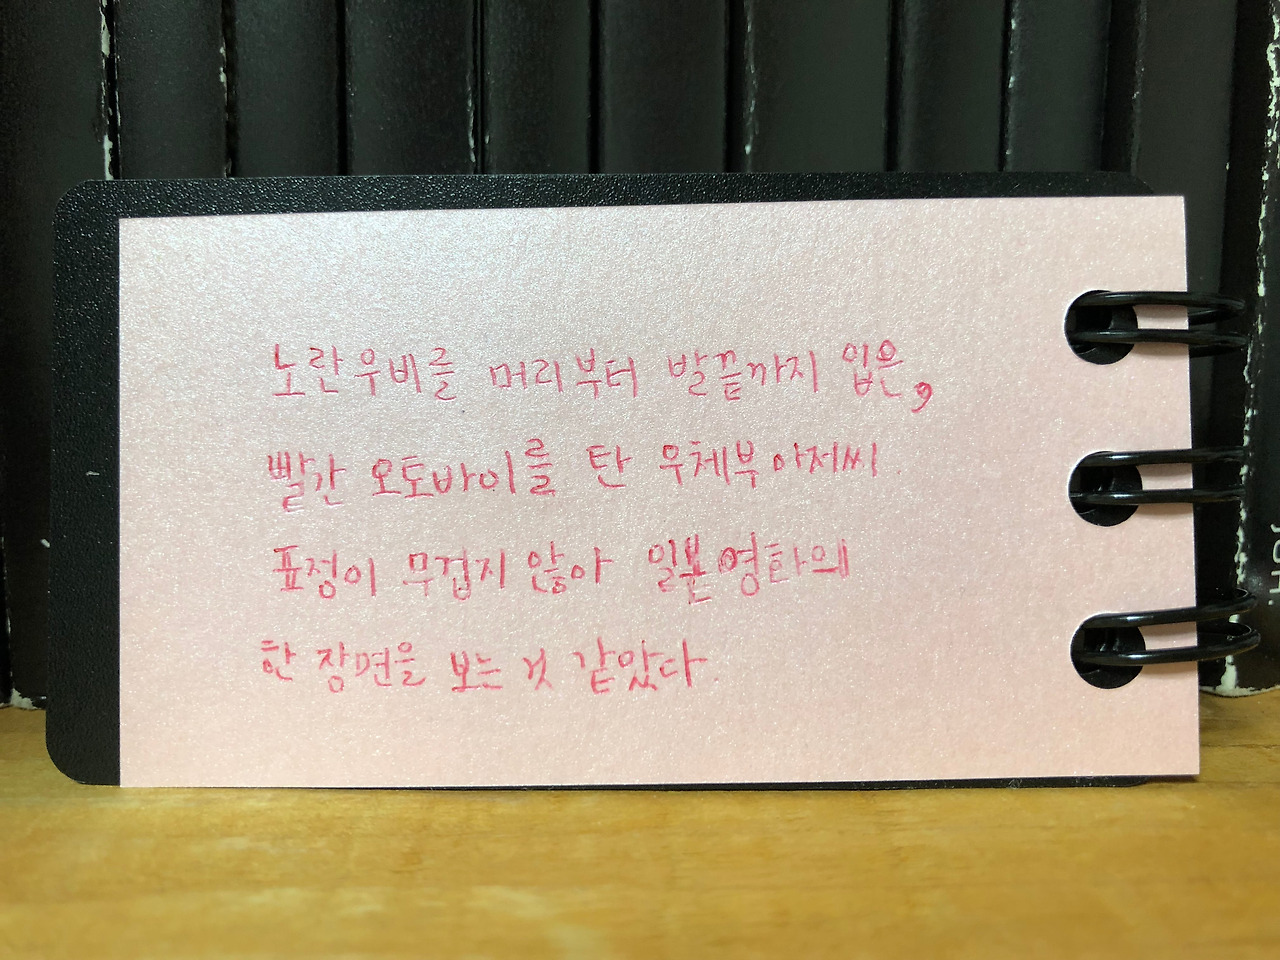 노란 우비를 머리부터 발끝까지 입은,
빨간 오토바이를 탄 우체부 아저씨.
표정이 무겁지 않아 일본 영화의
한 장면을 보는 것 같았다.